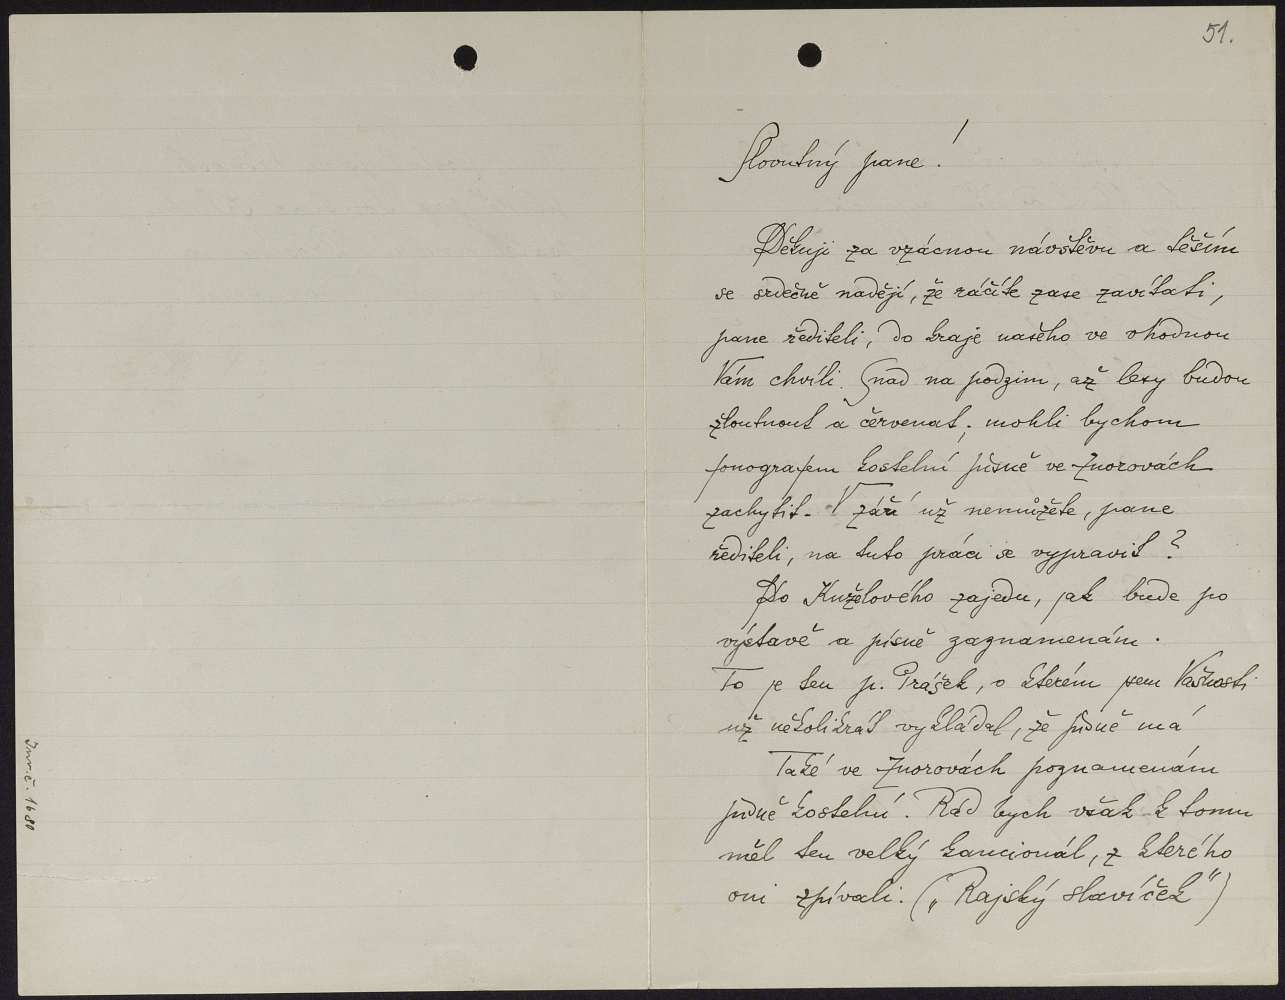 51.
Slovutný pane!
Děkuji za vzácnou návštěvu a těším
se srdečně nadějí, že ráčíte zase zavítati,
pane řediteli, do kraje našeho ve vhodnou
Vám chvíli. Snad na podzim, až lesy budou
žloutnout a červenat, mohli bychom
fonografem kostelní písně ve Znorovách
zachytit. V září už nemůžete, pane
řediteli, na tuto práci se vypravit?
Do Kuželového zajedu, jak bude po
výstavě a písně zaznamenám.
To je ten p. Prášek, o kterém jsem Vašnosti
už několikrát vykládal, že písně má
Také ve Znorovách poznamenám
písně kostelní. Rád bych však k tomu
měl ten velký kancionál, z kterého
oni zpívali. („Rajský slavíček")
Inv. č. 1680